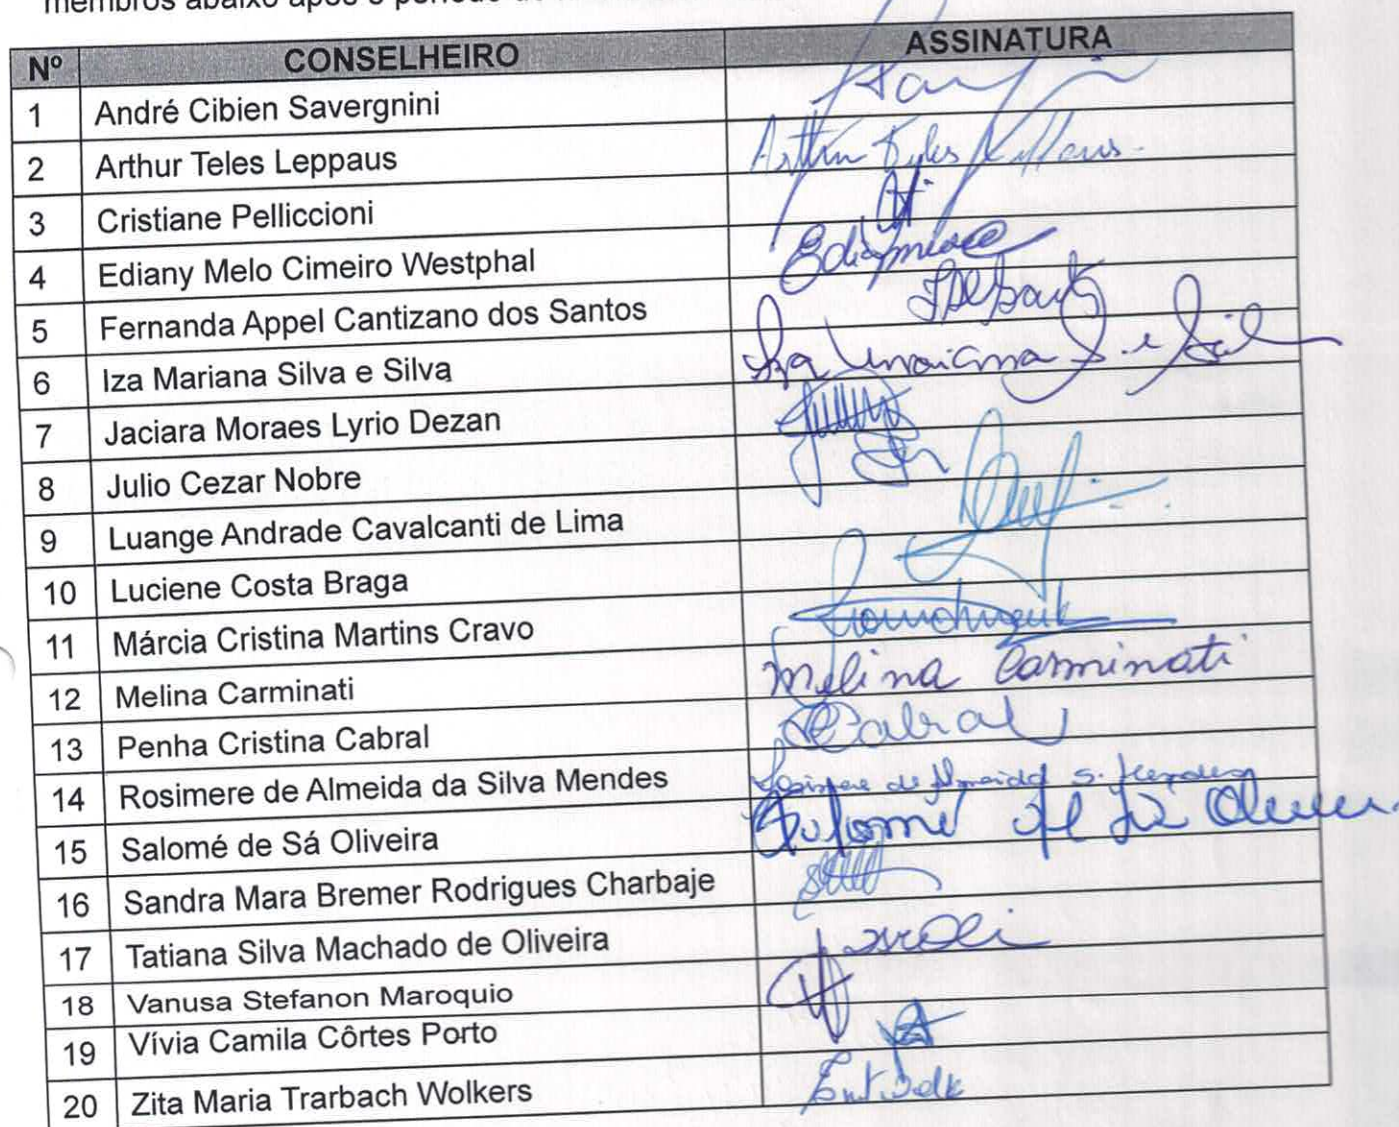 membros abaixo após o período de
Nº CONSELHEIRO ASSINATURA
1 André Cibien Savergnini
2 Arthur Teles Leppaus Arthur Teles Leppaus
3 Cristiane Pelliccioni
4 Ediany Melo Cimeiro Westphal
5 Fernanda Appel Cantizano dos Santos
6 Iza Mariana Silva e Silva Iza Mariana S. e Sil
7 Jaciara Moraes Lyrio Dezan
8 Julio Cezar Nobre
9 Luange Andrade Cavalcanti de Lima
10 Luciene Costa Braga
11 Márcia Cristina Martins Cravo
12 Melina Carminati Melina Carminati
13 Penha Cristina Cabral Cabral
14 Rosimere de Almeida da Silva Mendes Rosimere de Almeida S. Mendes
15 Salomé de Sá Oliveira Salomé de Sá Oliveira
16 Sandra Mara Bremer Rodrigues Charbaje
17 Tatiana Silva Machado de Oliveira
18 Vanusa Stefanon Maroquio
19 Vívia Camila Côrtes Porto
20 Zita Maria Trarbach Wolkers